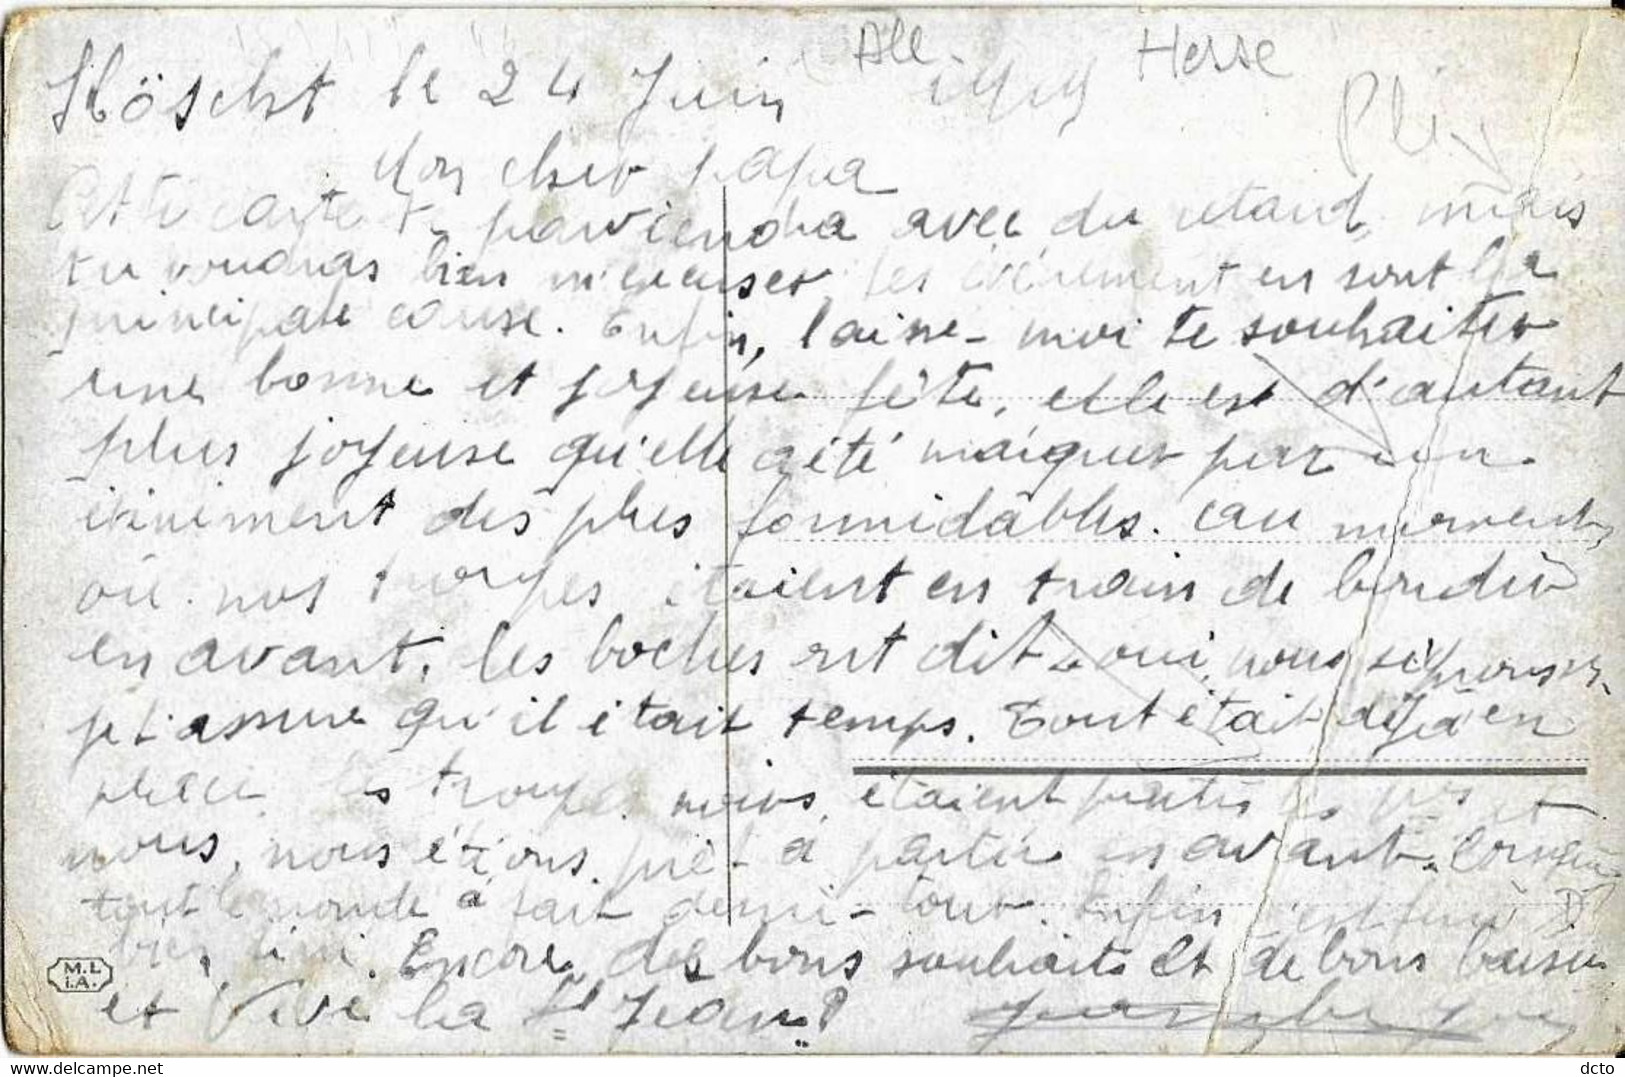 All. Hesse
Pli
Höscht le 24 Juin 1919
Mon cher papa
Cette carte te parviendra avec du retard, mais
tu voudras bien m'excuser les évènement en sont la
principale cause. Enfin, laisse-moi te souhaiter
une bonne et joyeuse fête, elle est d'autant
plus joyeuse qu'elle a été marquer par un
évènement des plus formidables. au moment
où nos troupes étaient en train de bondir
en avant, les boches ont dit "oui, nous signons"
je t'assure qu'il était temps. Tout était déjà en
place les troupes noires étaient parties et
nous, nous étions prêt à partir en avant. Lorsque
tout le monde a fait demi-tour. Enfin c'est fini
bien fini. Encore des bons souhaits et de bons baisers
et Vive la St Jean!
M.L
I.A.
dcto